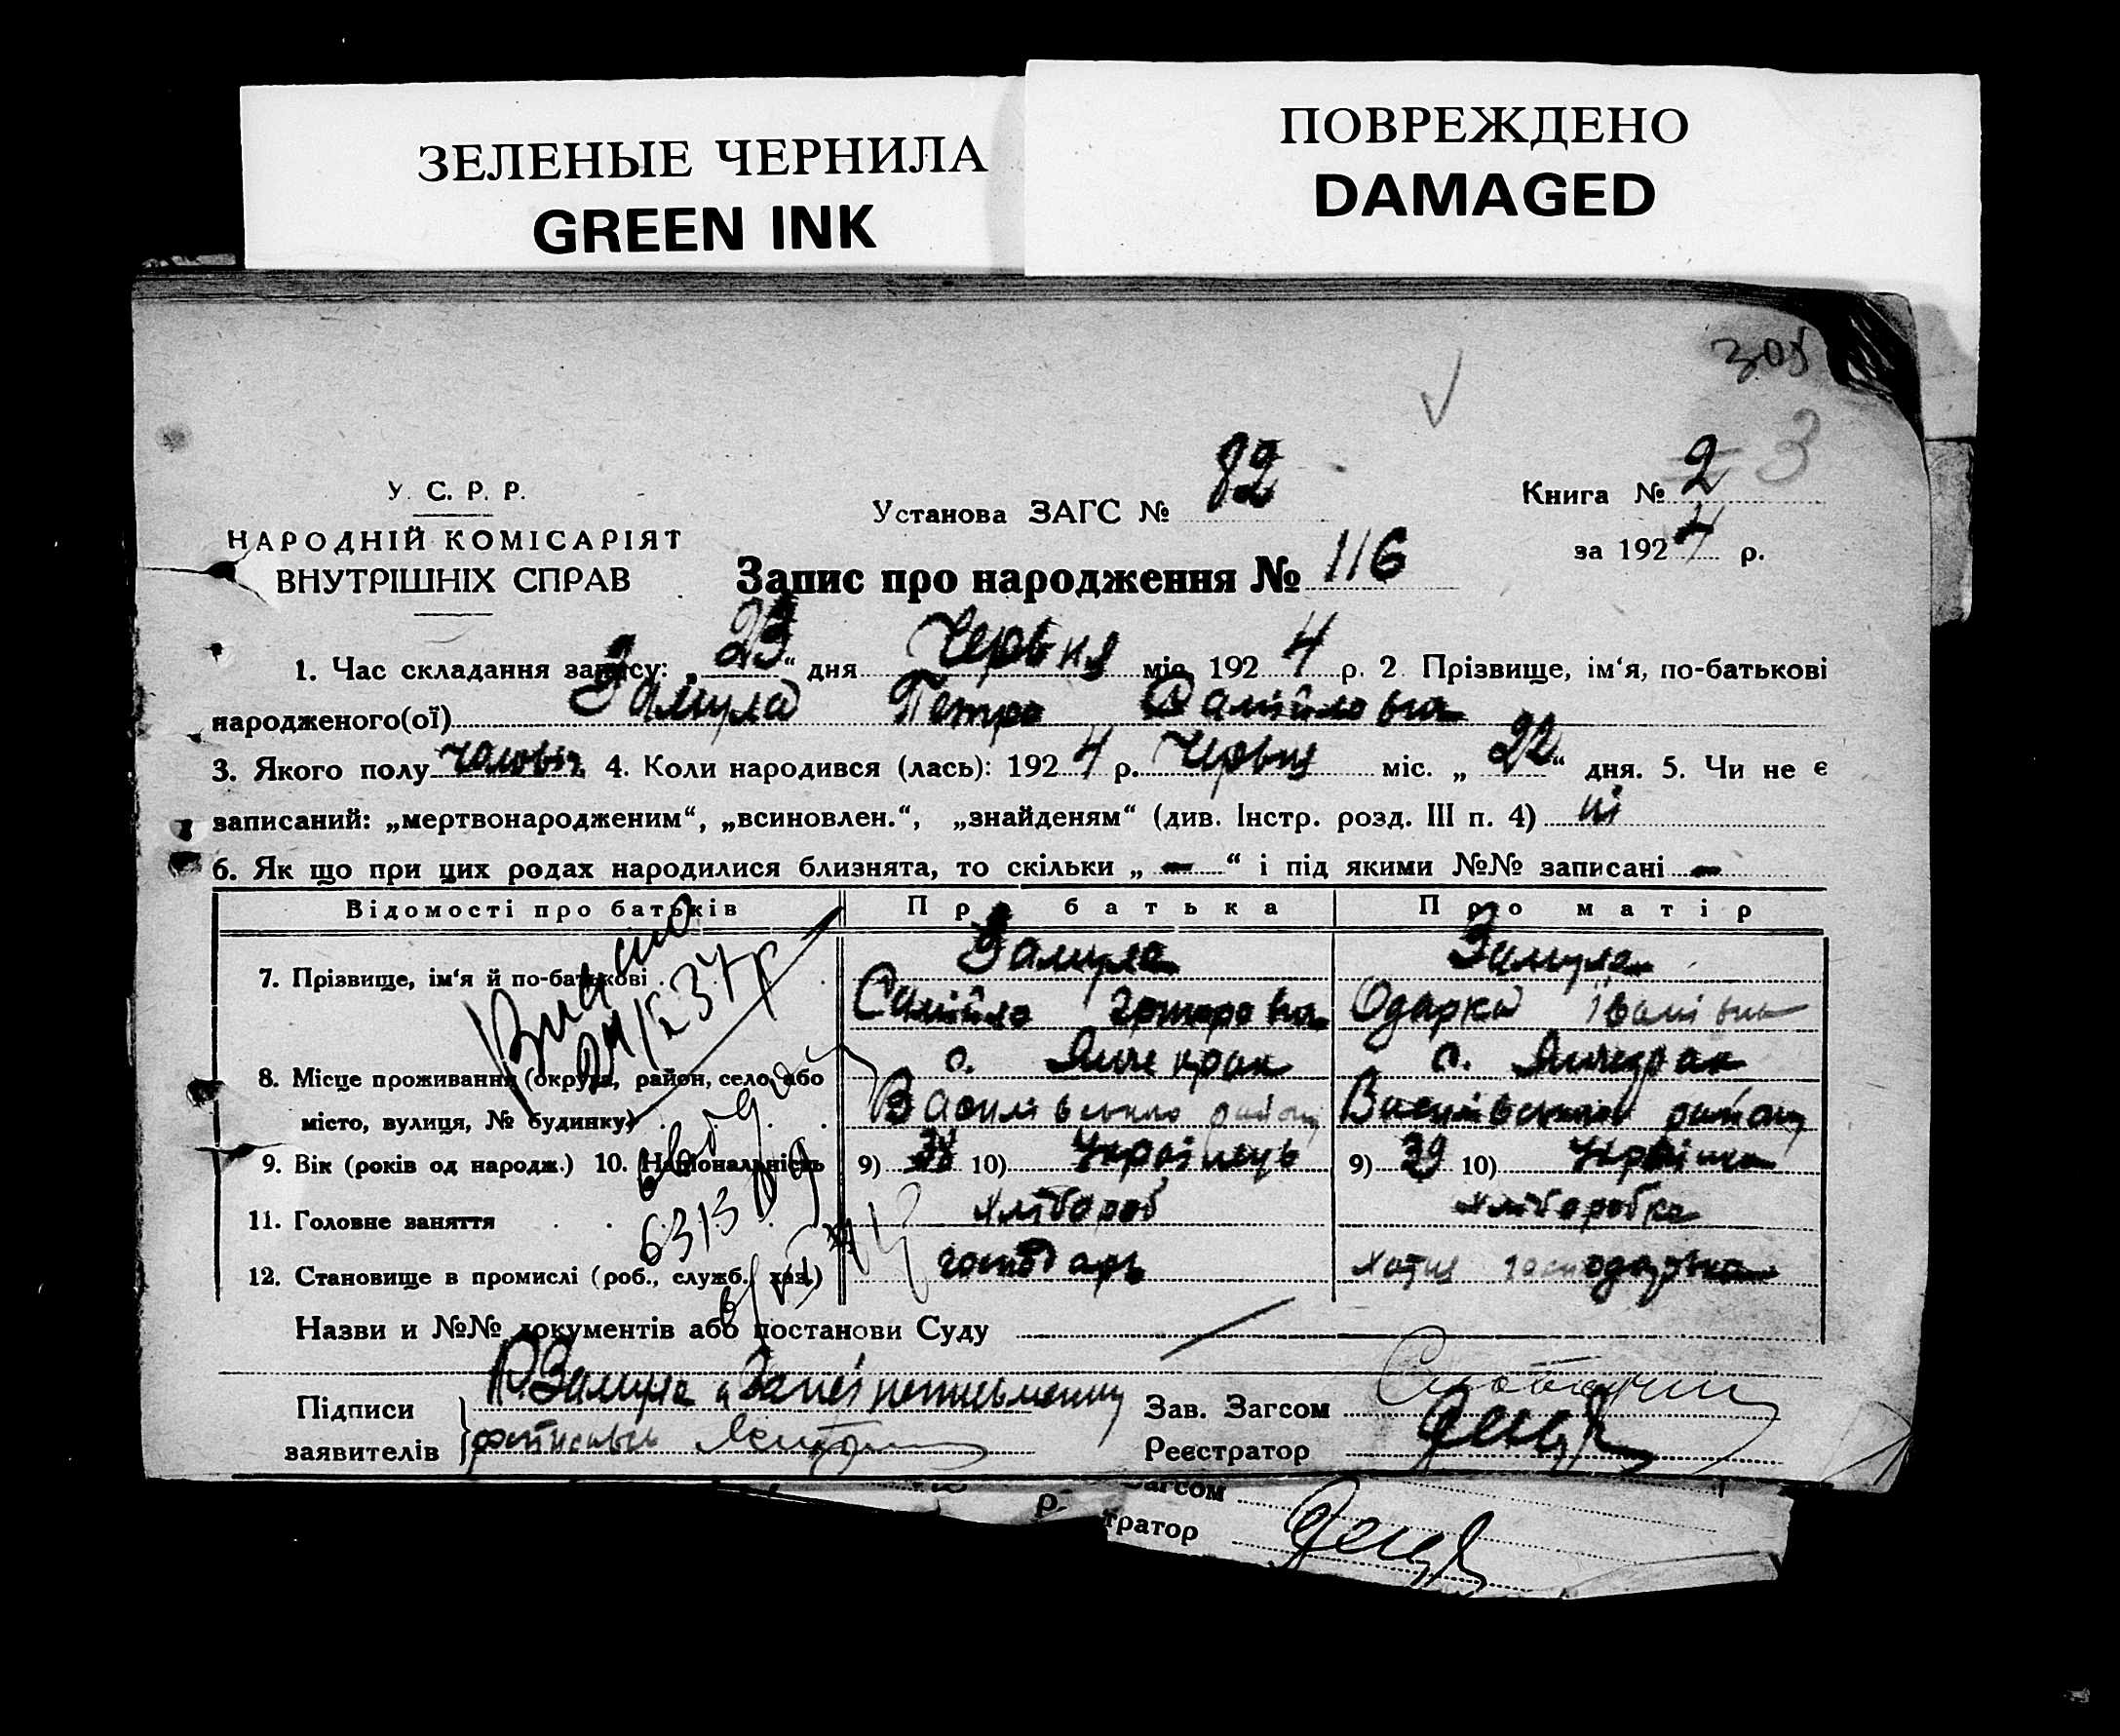 ЗЕЛЕНЫЕ ЧЕРНИЛА
GREEN INK
ПОВРЕЖДЕНО
DAMAGED
305
У. С. Р. Р.
НАРОДНІЙ КОМІСАРІЯТ
ВНУТРІШНІХ СПРАВ
Установа ЗАГС № 82
Книга № 2 3
за 1924 р.
Запис про народження № 116
1. Час складання запису: „23“ дня Червня міс. 1924 р. 2 Прізвище, ім‘я, по-батькові
народженого(ої) Замула Петро Самійлович
3. Якого полу чоловіч. 4. Коли народився (лась): 1924 р. Червня міс. „22“ дня. 5. Чи не є
записаний: „мертвонародженим“, „всиновлен.“, „знайденям“ (див. Інстр. розд. III п. 4) ні
6. Як що при цих родах народилися близнята, то скільки „—“ і під якими №№ записані —
Відомості про батьків Про батька Про матір
7. Прізвище, ім‘я й по-батькові Замула Замула
Самійло Григорович Одарка Іванівна
8. Місце проживання (округа, район, село, або с. Янчекрак с. Янчекрак
місто, вулиця, № будинку) Василівського району Василівського району
9. Вік (років од народж.) 10. Національність 9) 38 10) Українець 9) 39 10) Українка
11. Головне заняття хлібороб хліборобка
12. Становище в промислі (роб., служб., хаз.) господарь хатня господарька
24/X 37р
6313
Назви и №№ документів або постанови Суду
Підписи Замула неписьменну
заявителів
Зав. Загсом
Реєстратор
р.
Загсом
тратор